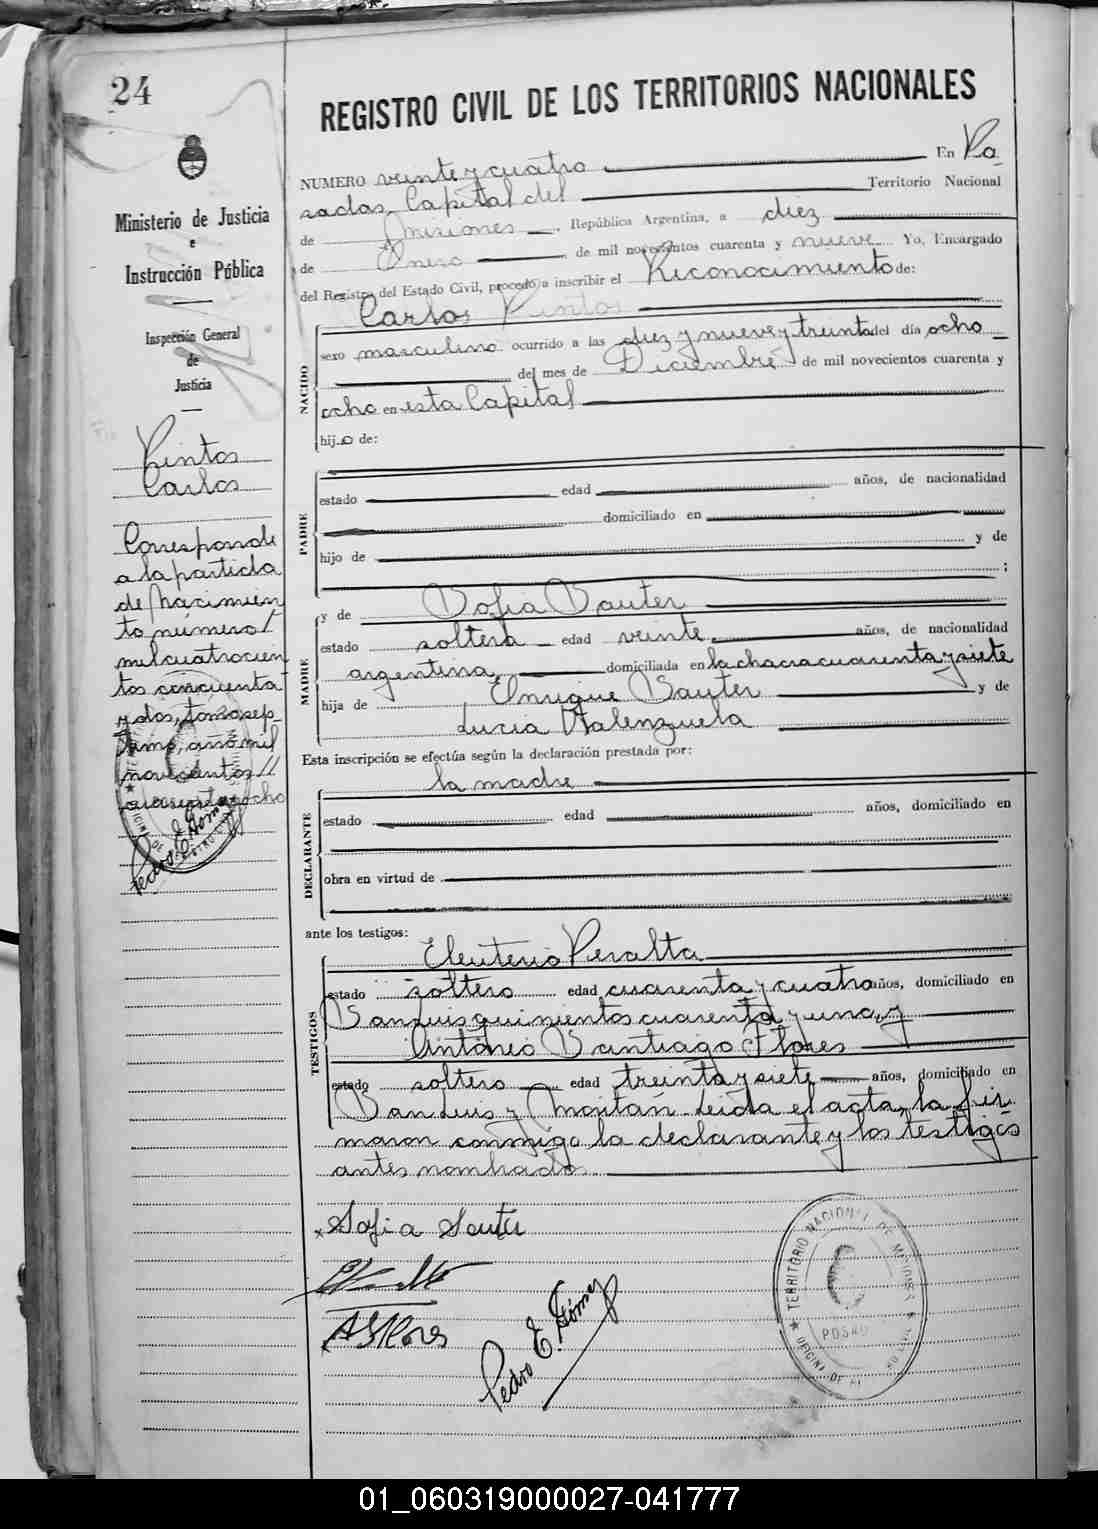 24
REGISTRO CIVIL DE LOS TERRITORIOS NACIONALES
Ministerio de Justicia
e
Instrucción Pública
Inspección General
de
Justicia
Pintos
Carlos
Corresponde
a la partida
de Nacimien
to número/
mil cuatrocien
tos cincuenta
y dos, tomo sep_
timo, año mil
novecientos //
cuarenta y ocho
Pedro E. Gómez
NUMERO veinte y cuatro En Po
sadas, Capital del Territorio Nacional
de Misiones, República Argentina, a diez
de Enero de mil novecientos cuarenta y nueve Yo, Encargado
del Registro del Estado Civil, procedo a inscribir el Reconocimiento de:
Carlos Pintos
NACIDO
sexo masculino ocurrido a las diez y nueve y treinta del día ocho
del mes de Diciembre de mil novecientos cuarenta y
ocho en esta Capital
hijo de:
PADRE
estado edad años, de nacionalidad
domiciliado en
hijo de y de
;
MADRE
y de Sofia Sauter
estado soltera edad veinte años, de nacionalidad
argentina, domiciliada en la chacra cuarenta y siete
hija de Enrique Sauter y de
Lucia Valenzuela
Esta inscripción se efectúa según la declaración prestada por:
la madre
DECLARANTE
estado edad años, domiciliado en
obra en virtud de
ante los testigos:
TESTIGOS
Eleuterio Peralta
estado soltero edad cuarenta y cuatro años, domiciliado en
San Luis quinientos cuarenta y uno, y
Antonio Santiago Flores
estado soltero edad treinta y siete años, domiciliado en
San Luis y Moritán. Leida el acta, la fir_
maron conmigo la declarante y los testigos
antes nombrados.
Sofia Sauter
A S Flores
Pedro E. Gómez
TERRITORIO NACIONAL DE MISIONES
POSAD
OFICINA DE
01_060319000027-041777